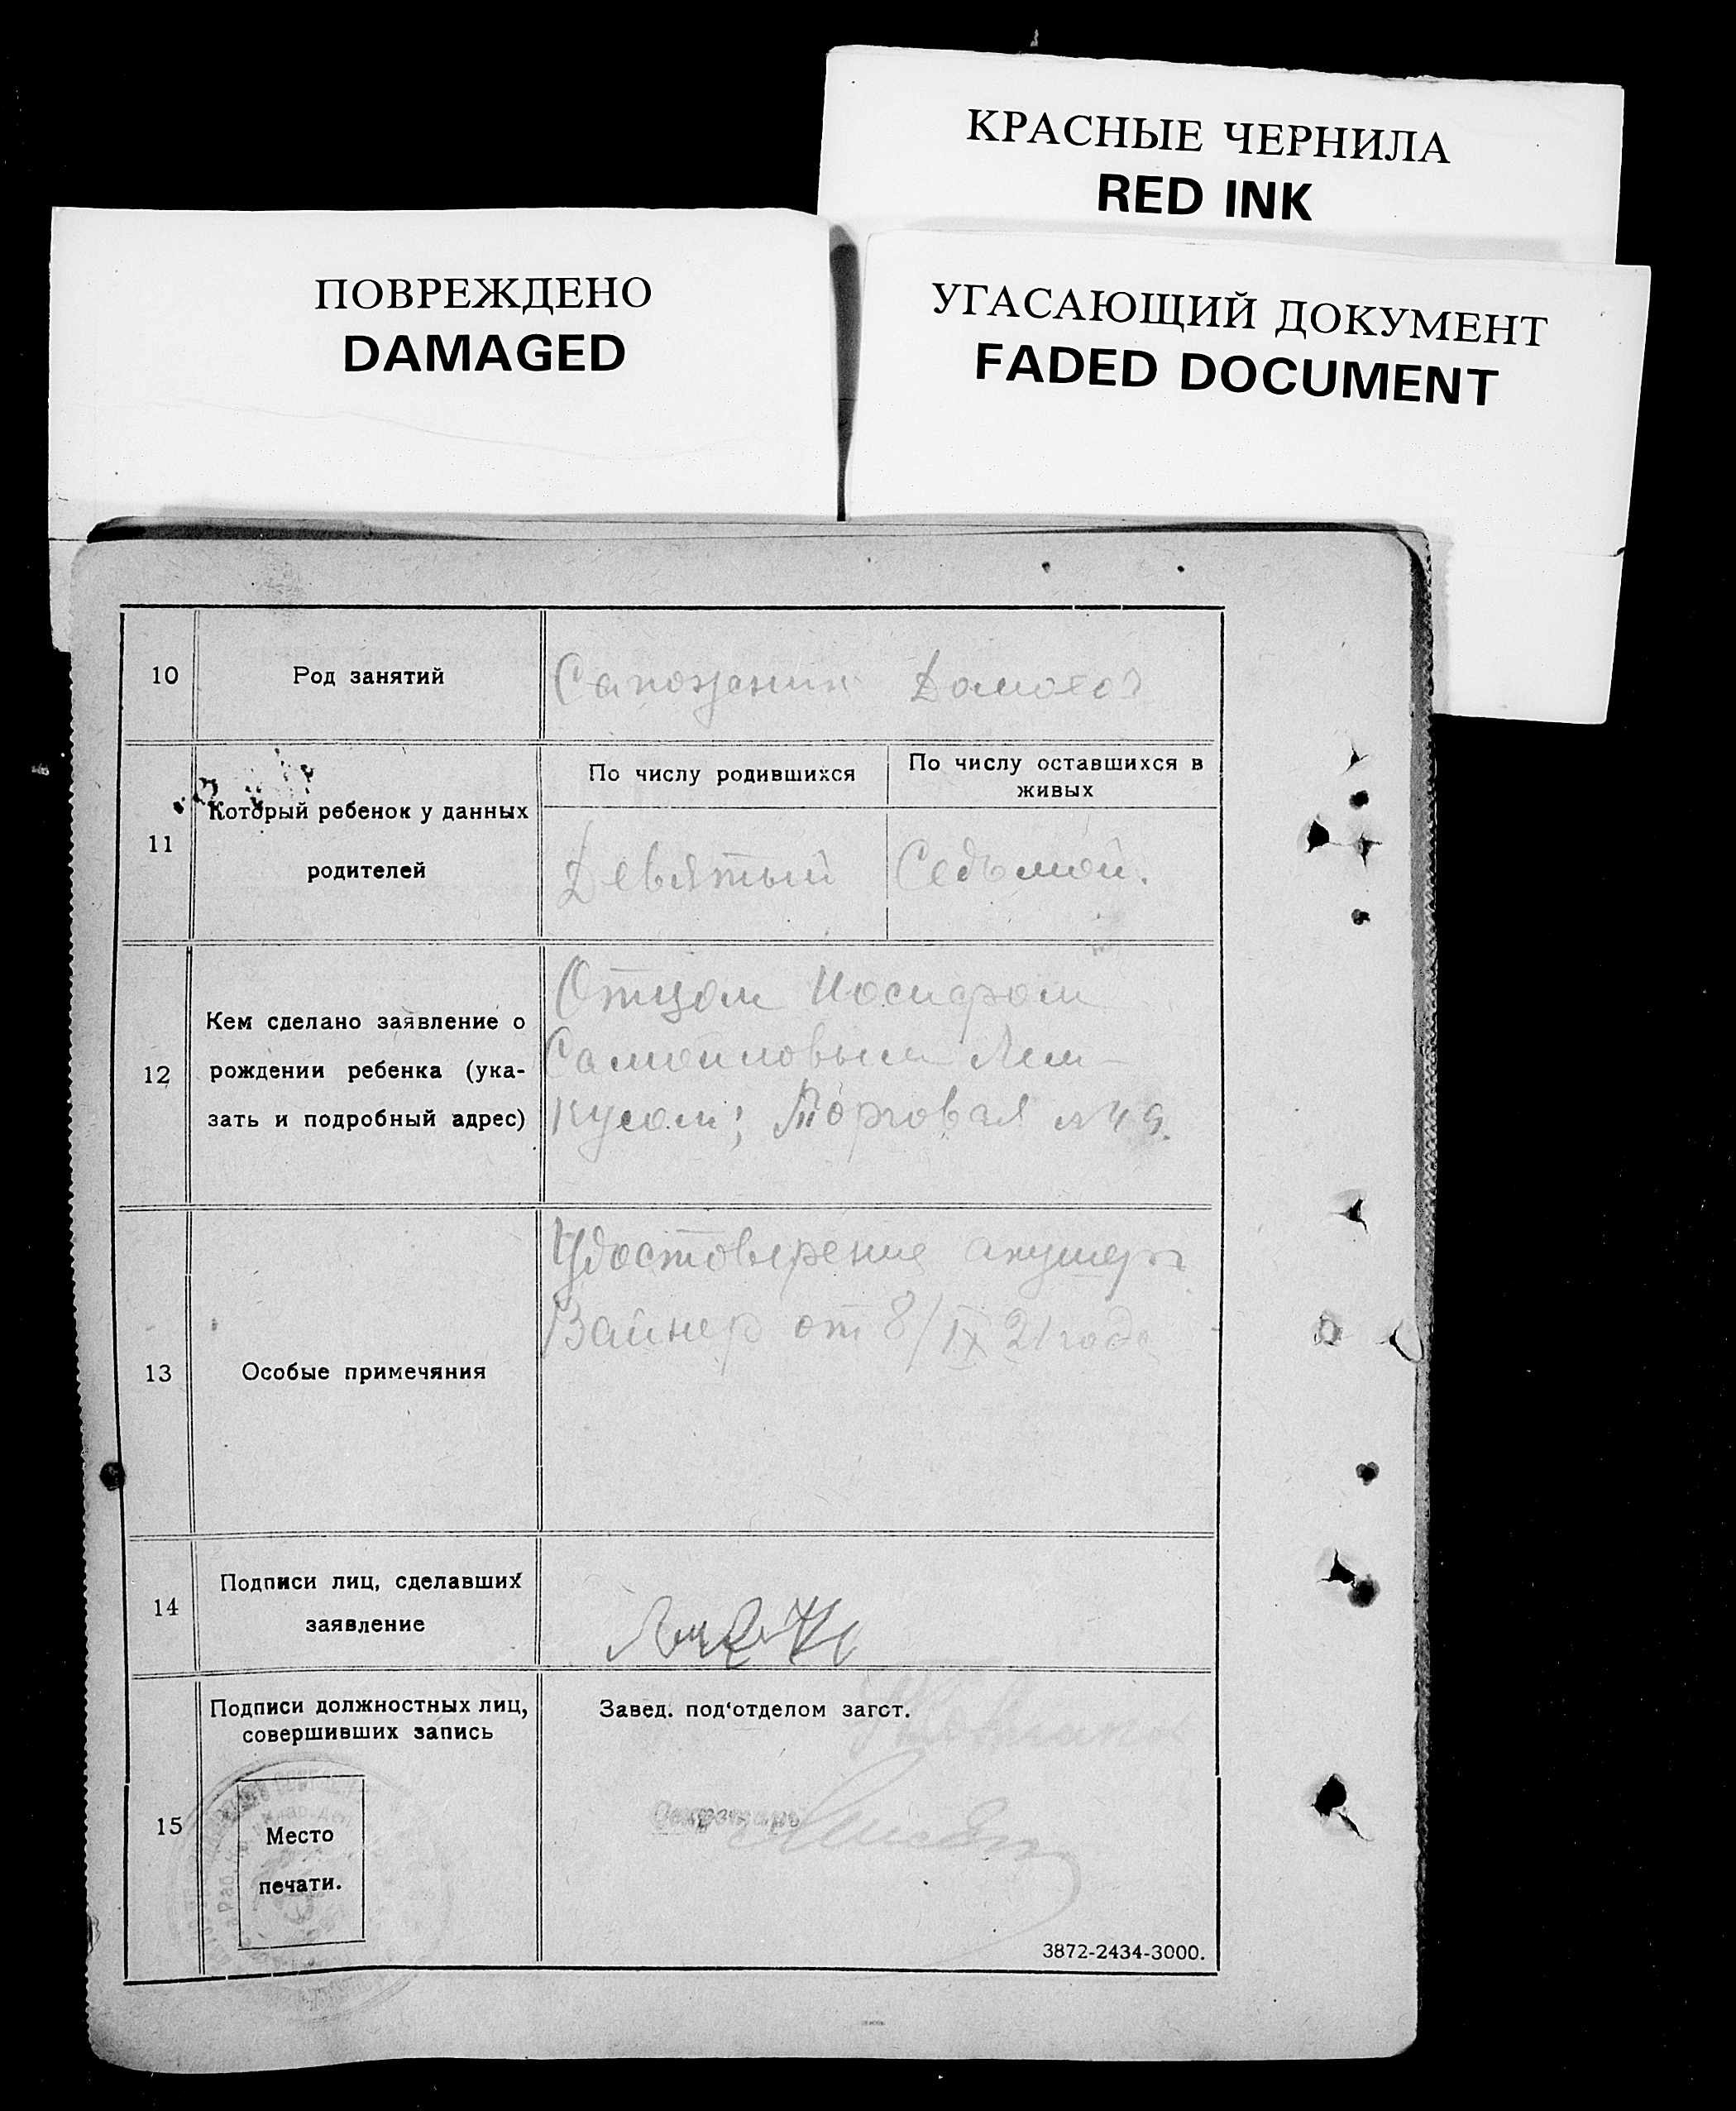 КРАСНЫЕ ЧЕРНИЛА
RED INK
ПОВРЕЖДЕНО
DAMAGED
УГАСАЮЩИЙ ДОКУМЕНТ
FADED DOCUMENT
10
Род занятий
Сапожник Домохоз
11
Который ребенок у данных
родителей
По числу родившихся
По числу оставшихся в
живых
Девятый
Седьмой.
12
Кем сделано заявление о
рождении ребенка (ука-
зать и подробный адрес)
Отцом Иосифом
Самойловым Лин-
кусом; Торговая № 49.
13
Особые примечяния
Удостоверение акушерк
Вайнер от 8/IX 21 года
14
Подписи лиц, сделавших
заявление
15
Подписи должностных лиц,
совершивших запись
Место
печати.
Завед. под‘отделом загст.
3872-2434-3000.